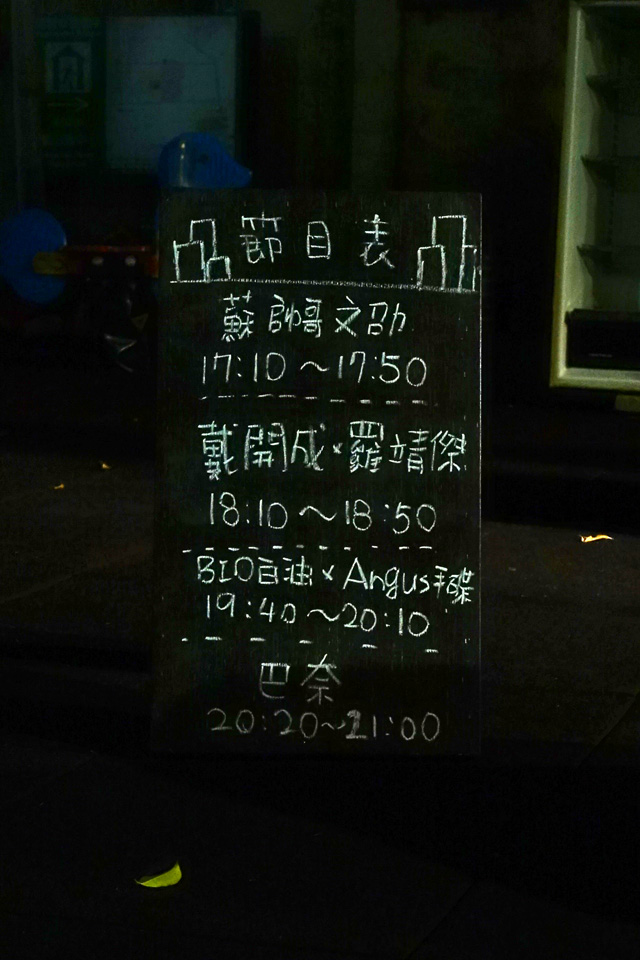 節目表
蘇帥哥文劭
17:10～17:50
戴開成×羅靖傑
18:10～18:50
BIO白油×Angus手碟
19:40～20:10
巴奈
20:20～21:00